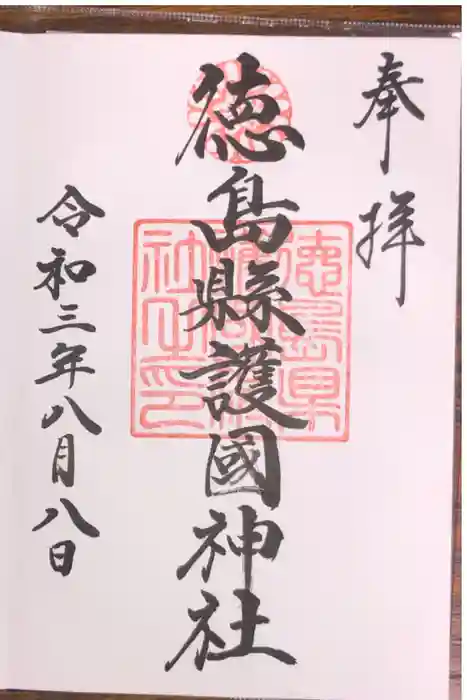 奉拝
徳島縣護國神社
徳島県
護國神
社之印
令和三年八月八日